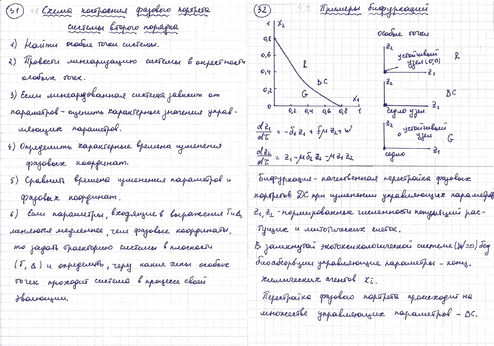 31
Схема построения фазового портрета
системы второго порядка
1) Найти особые точки системы.
2) Провести линеаризацию системы в окрестности
особых точек.
3) Если линеаризованная система зависит от
параметров – оценить характерные значения управ-
ляющих параметров.
4) Определить характерные времена изменения
фазовых координат.
5) Сравнить времена изменения параметров и
фазовых координат.
6) Если параметры, входящие в выражения T и Δ,
меняются медленнее, чем фазовые координаты,
то задать траекторию системы в плоскости
(T, Δ) и определить, через какие типы особых
точек проходит система в процессе своей
эволюции.
32
Примеры бифуркаций
x2
0,8
0,6
0,4
0,2
0
0,2 0,4 0,6 0,8 x1
R
DC
G
особые точки
z2
устойчивый
узел (0,0)
z1
R
z2
DC
z1
седло узел
z2
устойчивый
узел
G
z1
седло
dz1/dτ = -δ1z1 + fμz2 + w
dz2/dτ = z1 - μδ2z2 - μz1z2
Бифуркация – качественная перестройка фазовых
портретов DC при изменении управляющих параметров
z1, z2 – нормированные численности популяций рас-
тущих и клеток.
В замкнутой экотоксикологической системе (W=0) без
биоабсорбции управляющие параметры – конц.
химических агентов xi.
Перестройка фазового портрета происходит на
множестве управляющих параметров – DC.